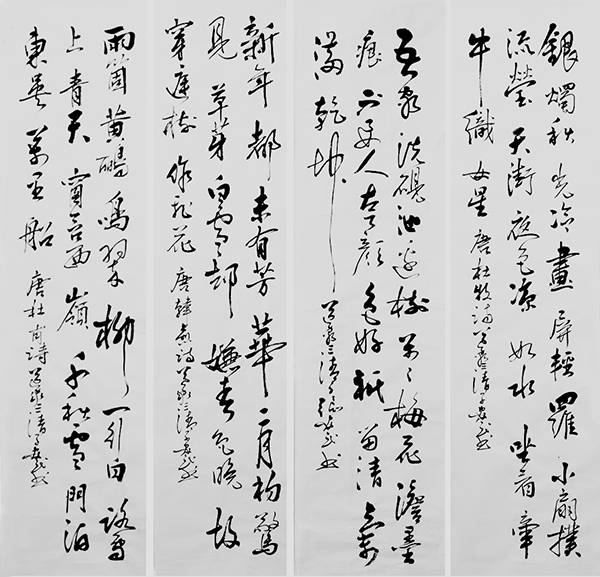 銀燭秋光冷畫屏輕羅小扇撲
流螢天街夜色涼如水坐看牽
牛織女星 唐杜牧詩
吾家洗硯池邊樹箇々梅花澹墨
痕不要人夸顏色好祇留清氣
滿乾坤
新年都未有芳華二月初驚
見草芽白雪却嫌春色晚故
穿庭樹作飛花 唐韓愈詩
兩箇黃鸝鳴翠柳一行白鷺
上青天窗含西嶺千秋雪門泊
東吳萬里船 唐杜甫詩